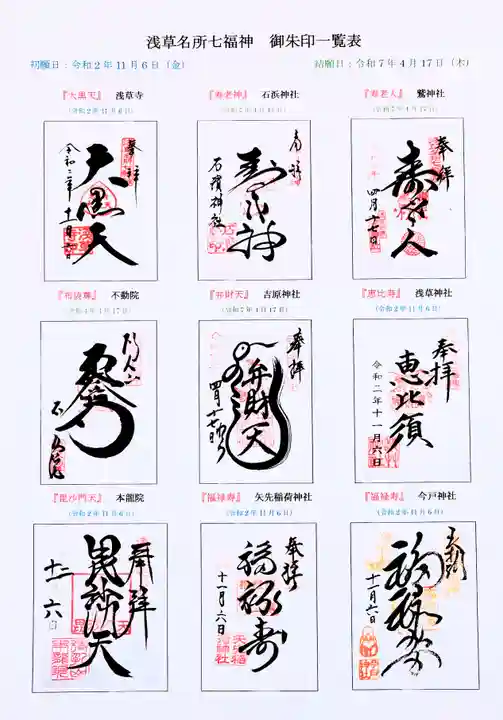 浅草名所七福神 御朱印一覧表
初願日：令和2年11月6日（金） 結願日：令和7年4月17日（木）
『大黒天』 浅草寺
（令和2年11月6日）
奉拝
天黒天
令和二年十一月六日
『寿老神』 石浜神社
（令和7年4月17日）
寿老神
石濱神社
『寿老人』 鷲神社
（令和7年4月17日）
奉拝
寿老人
四月十七日
『布袋尊』 不動院
『弁財天』 吉原神社
（令和7年4月17日）
奉拝
弁財天
四月十七日
『恵比寿』 浅草神社
（令和2年11月6日）
奉拝
恵比須
令和二年十一月六日
『毘沙門天』 本龍院
（令和2年11月6日）
奉拝
毘沙門天
十一 六
『福禄寿』 矢先稲荷神社
（令和2年11月6日）
奉拝
福禄寿
十一月六日
『福禄寿』 今戸神社
（令和2年11月6日）
福禄寿
十一月六日